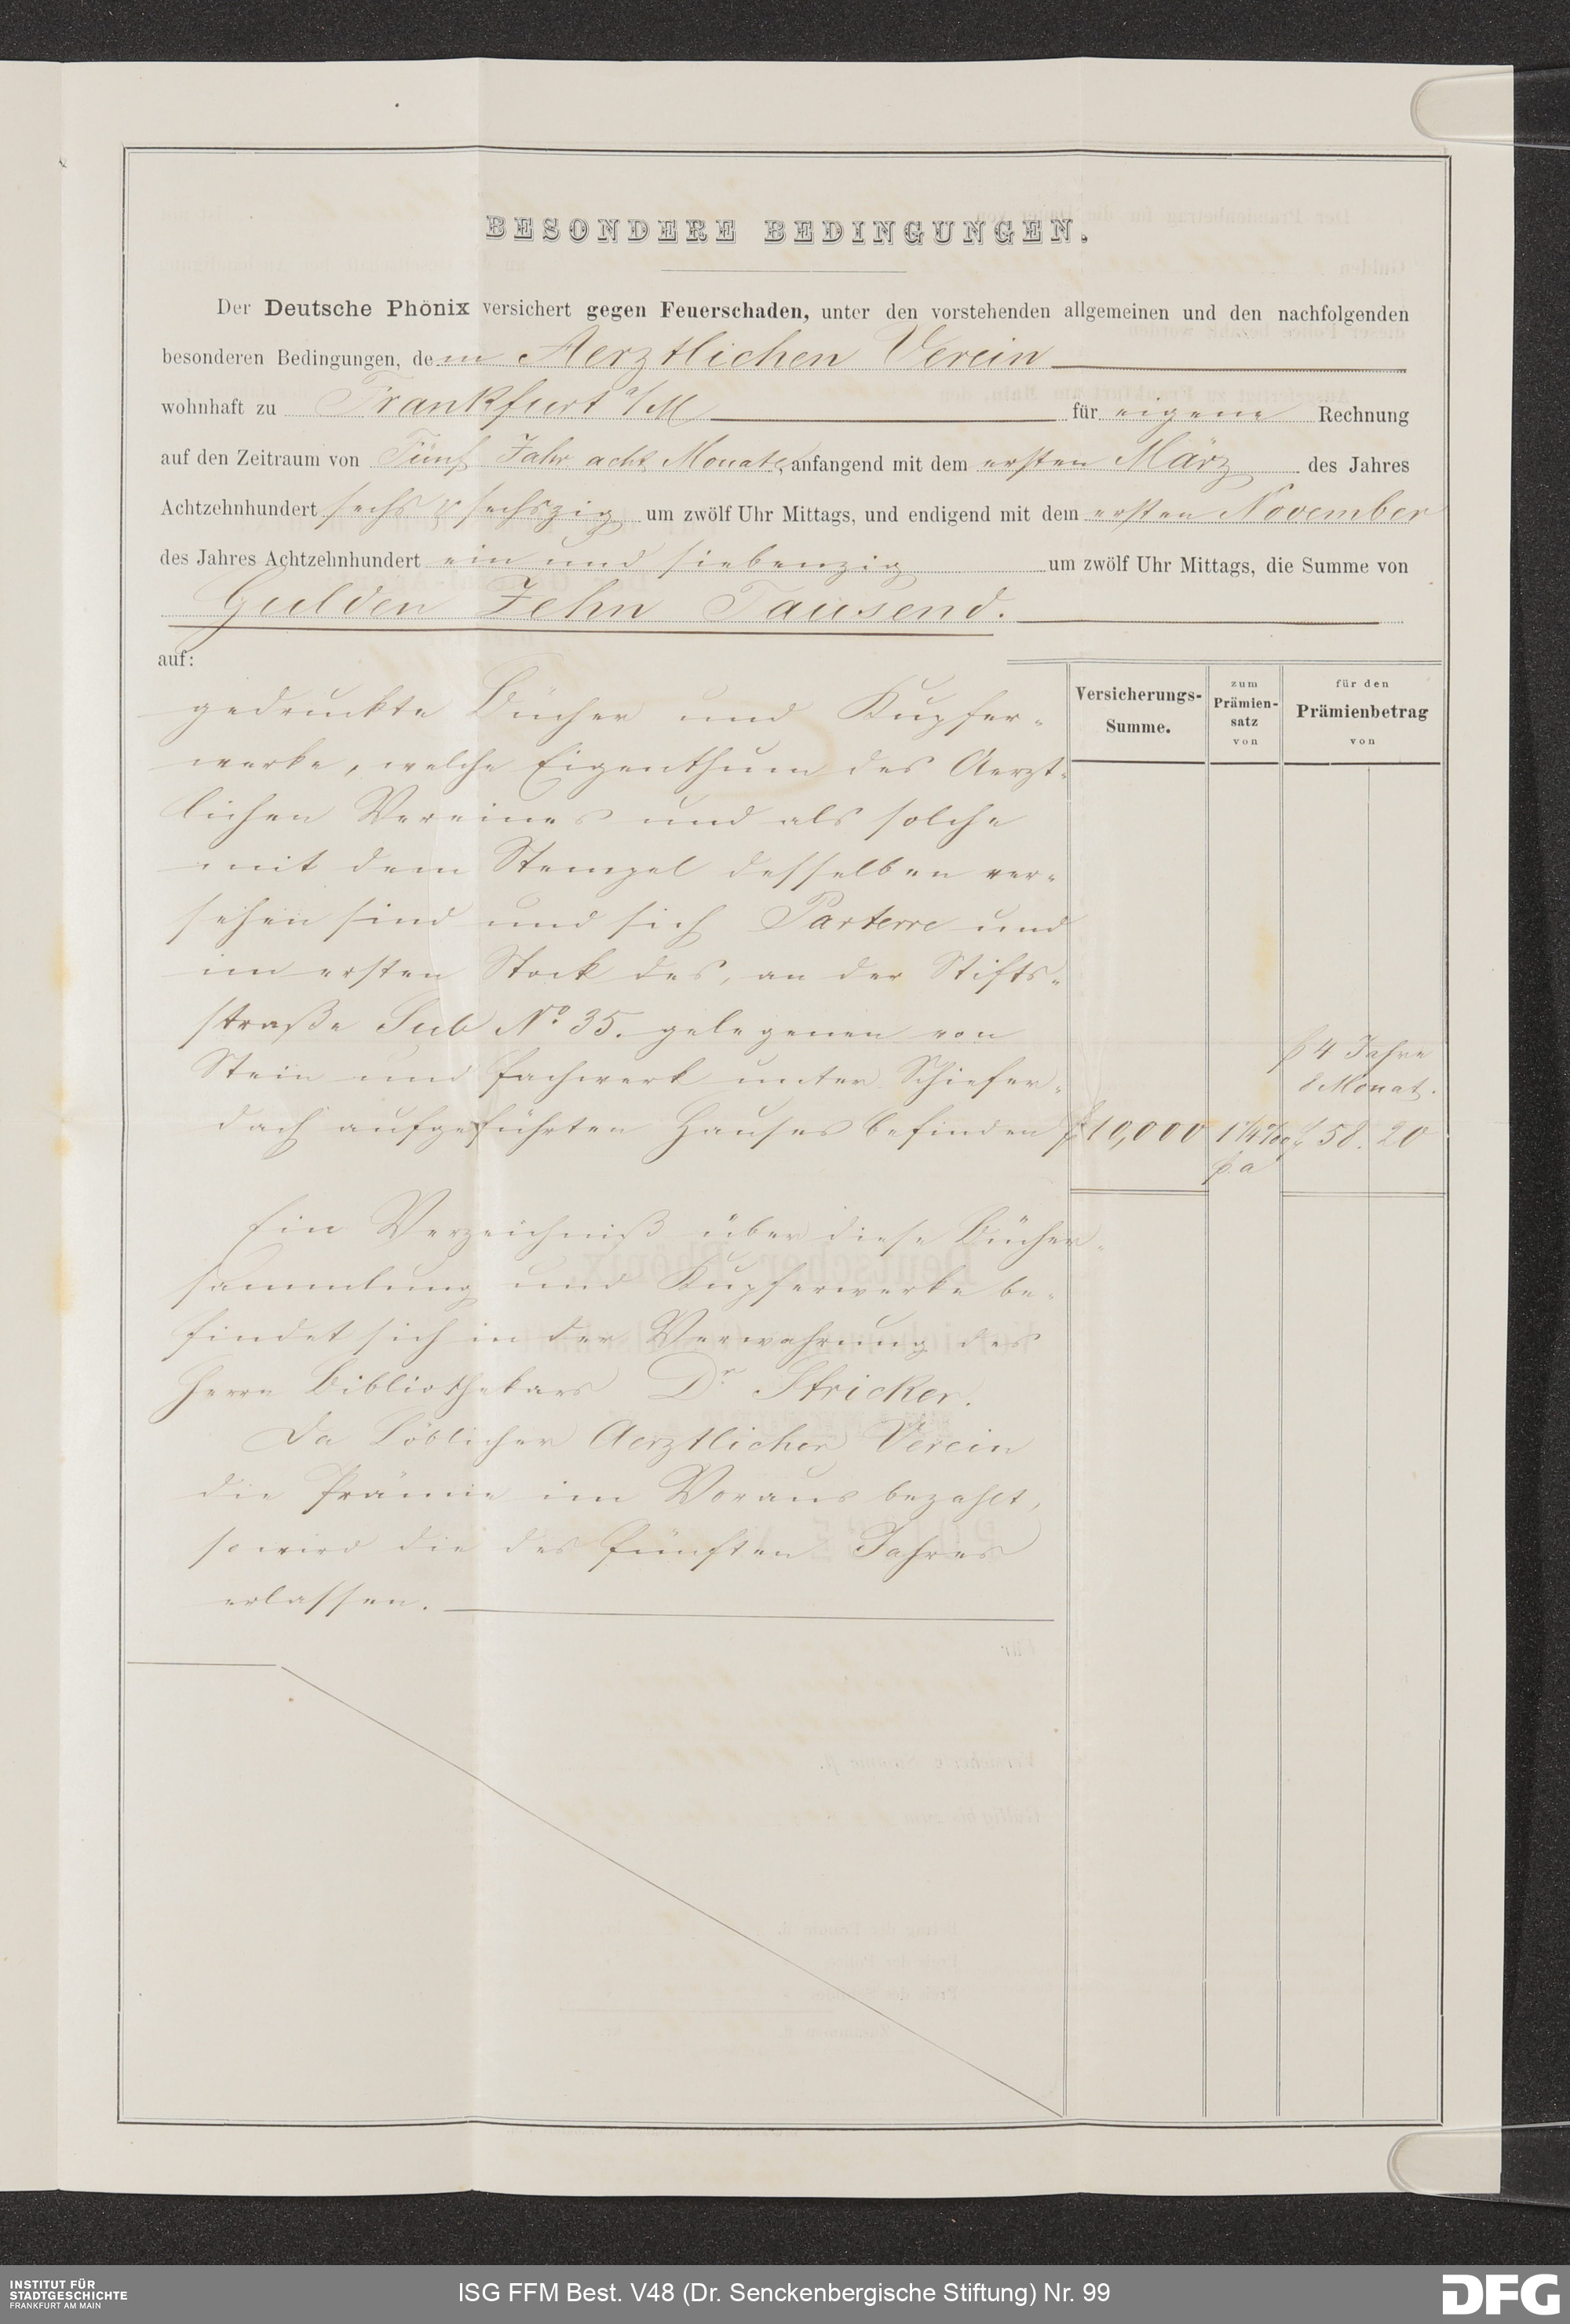 BESONDERE BEDINGUNGEN.
Der Deutsche Phönix versichert gegen Feuerschaden, unter den vorstehenden allgemeinen und den nachfolgenden
besonderen Bedingungen, dem Aerztlichen Verein
wohnhaft zu Frankfurt a/M für eigene Rechnung
auf den Zeitraum von Fünf Jahr acht Monate, anfangend mit dem ersten März des Jahres
Achtzehnhundert sechs & sechszig um zwölf Uhr Mittags, und endigend mit dem ersten November
des Jahres Achtzehnhundert ein und siebenzig um zwölf Uhr Mittags, die Summe von
Gulden Zehn Tausend.
auf:
Versicherungs-Summe.
zum Prämien-satz von
für den Prämienbetrag von
gedruckte Bücher und Kupfer-
werke, welche Eigenthum des Aerzt-
lichen Vereines und als solche
mit dem Stempel desselben ver-
sehen sind und sich Parterre und
im ersten Stock des, an der Stifts-
straße Sub No. 35. gelegenen von
Stein und Fachwerk unter Schiefer-
p 4 Jahre
8 Monat.
dach aufgeführten Hauses befinden f 10,000 1 1/4 ‰ f 58. 20
p. a
Ein Verzeichniß über diese Bücher-
sammlung und Kupferwerke be-
findet sich in der Verwahrung des
Herrn Bibliothekars Dr. Stricker.
Da Löblicher Aerztlicher Verein
die Prämie im Voraus bezahlt,
so wird die des fünften Jahres
erlassen.
INSTITUT FÜR
STADTGESCHICHTE
FRANKFURT AM MAIN
ISG FFM Best. V48 (Dr. Senckenbergische Stiftung) Nr. 99
DFG